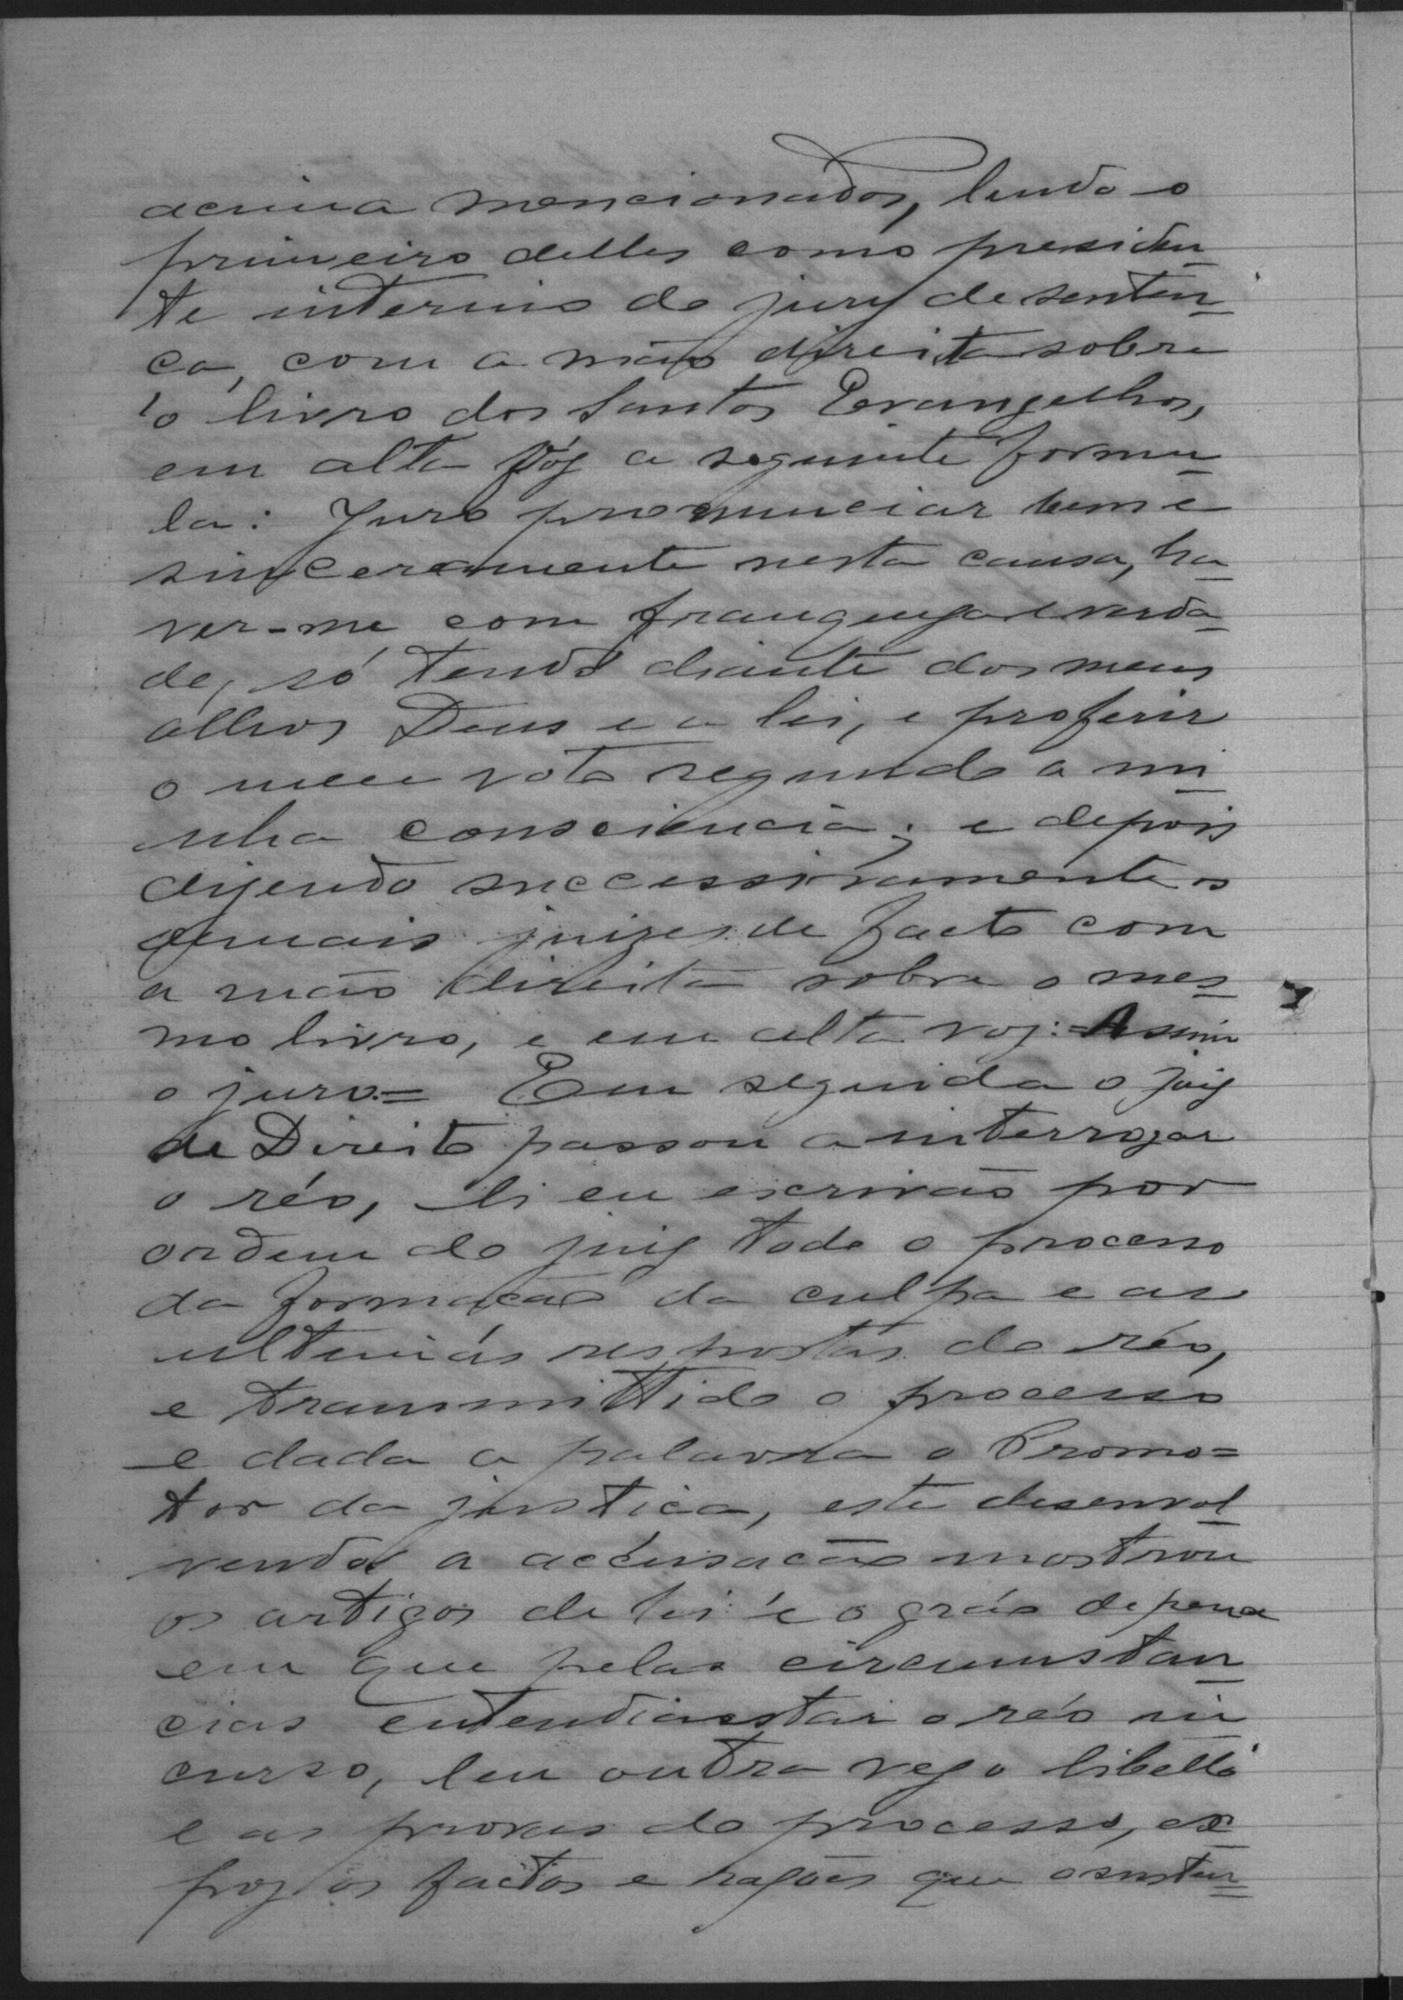 acima mencionados, lendo o
primeiro delles como presiden-
te interino do jury de senten-
ça, com a mão direita sobre
o livro dos Santos Evangelhos,
em alta vóz a seguinte formu-
la: Juro pronunciar bem e
sinceramente nesta causa, ha-
ver-me com franqueza e verda-
de, só tendo diante dos meus
olhos Deus e a lei, e proferir
o meu voto segundo a mi-
nha consciencia; e depois
dizendo successivamente os
demais juizes de facto com
a mão direita sobre o mes-
mo livro, e em alta voz: =Assim
o juro.= Em seguida o juiz
de Direito passou a interrogar
o réo, li eu escrivão por
ordem do juiz todo o processo
da formação da culpa e as
ultimas respostas do réo,
e transmittido o processo
e dada a palavra o Promo=
tor da justiça, este desenvol-
vendo a accusação mostrou
os artigos de lei e o gráo de pena
em que pelas circumstan-
cias entendia estar o réo in-
curso, leu outra vez o libello
e as provas do processo, ex-
poz os factos e razões que o susten=